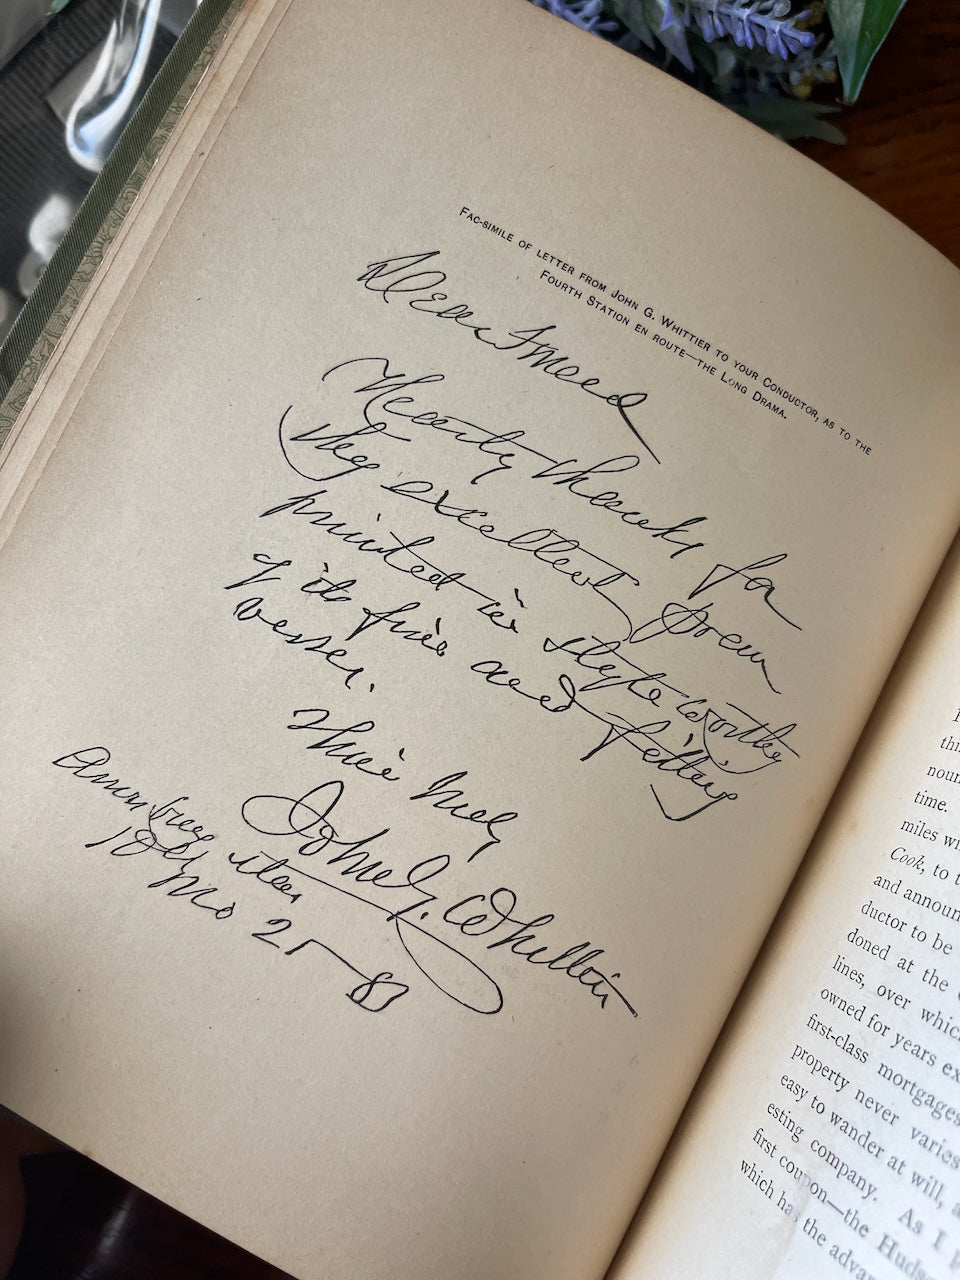 FAC-SIMILE OF LETTER FROM JOHN G. WHITTIER TO YOUR CONDUCTOR, AS TO THE
FOURTH STATION EN ROUTE—THE LONG DRAMA.
Dear Friend
Hearty thanks for
thy excellent poem
printed in style worthy
of its fine and fitting
verses.
Thine truly
John G. Whittier
Amesbury
10th
Mo 25
thin
noun
time.
miles wi
Cook, to t
and announ
ductor to be
doned at the
lines, over whic
owned for years ex
first-class mortgages
property never varies
easy to wander at will, a
esting company. As I
first coupon—the Huds
which has the advan